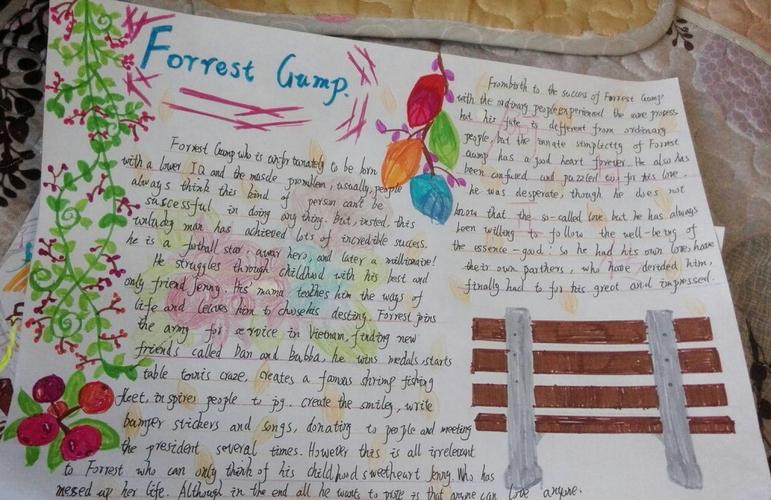 Forrest Gump.
Forrest Gump who is unfortunately to be born
with a lower IQ and the muscle promlem, usually, people
always think this kind of person can't be
successful in doing any thing. But, insted, this
unlucky man has achieved lots of incredible success.
he is a football star, a war hero, and later a millionaire!
He struggles through childhood with his best and
only friend Jenny. His mama teaches him the ways of
life and leaves him to choose his destiny. Forrest joins
the army for service in Vietnam, finding new
friends called Dan and bubba, he wins medals, starts
table tennis craze, creates a famous shrimp fishing
fleet, inspires people to jog. create the smiley, write
bumper stickers and songs, donating to people and meeting
the president several times. However this is all irrelevant
to Forrest who can only think of his childhood sweetheart Jenny. Who has
messed up her life. Although in the end all he wants to prove is that anyone can love anyone.
From birth to the success of Forrest Gump
with the ordinary people experienced the same process
but his fate is different from ordinary
people, but the innate simplicity of Forrest
Gump has a good heart forever. He also has
been confused and puzzled to for his love
he was desperate, though he does not
know that the so-called love but he has always
been willing to follow the well-being of
the essence - good, so he had his own love, have
their own parthers, who have derided him,
finally had to for his great and impressed.